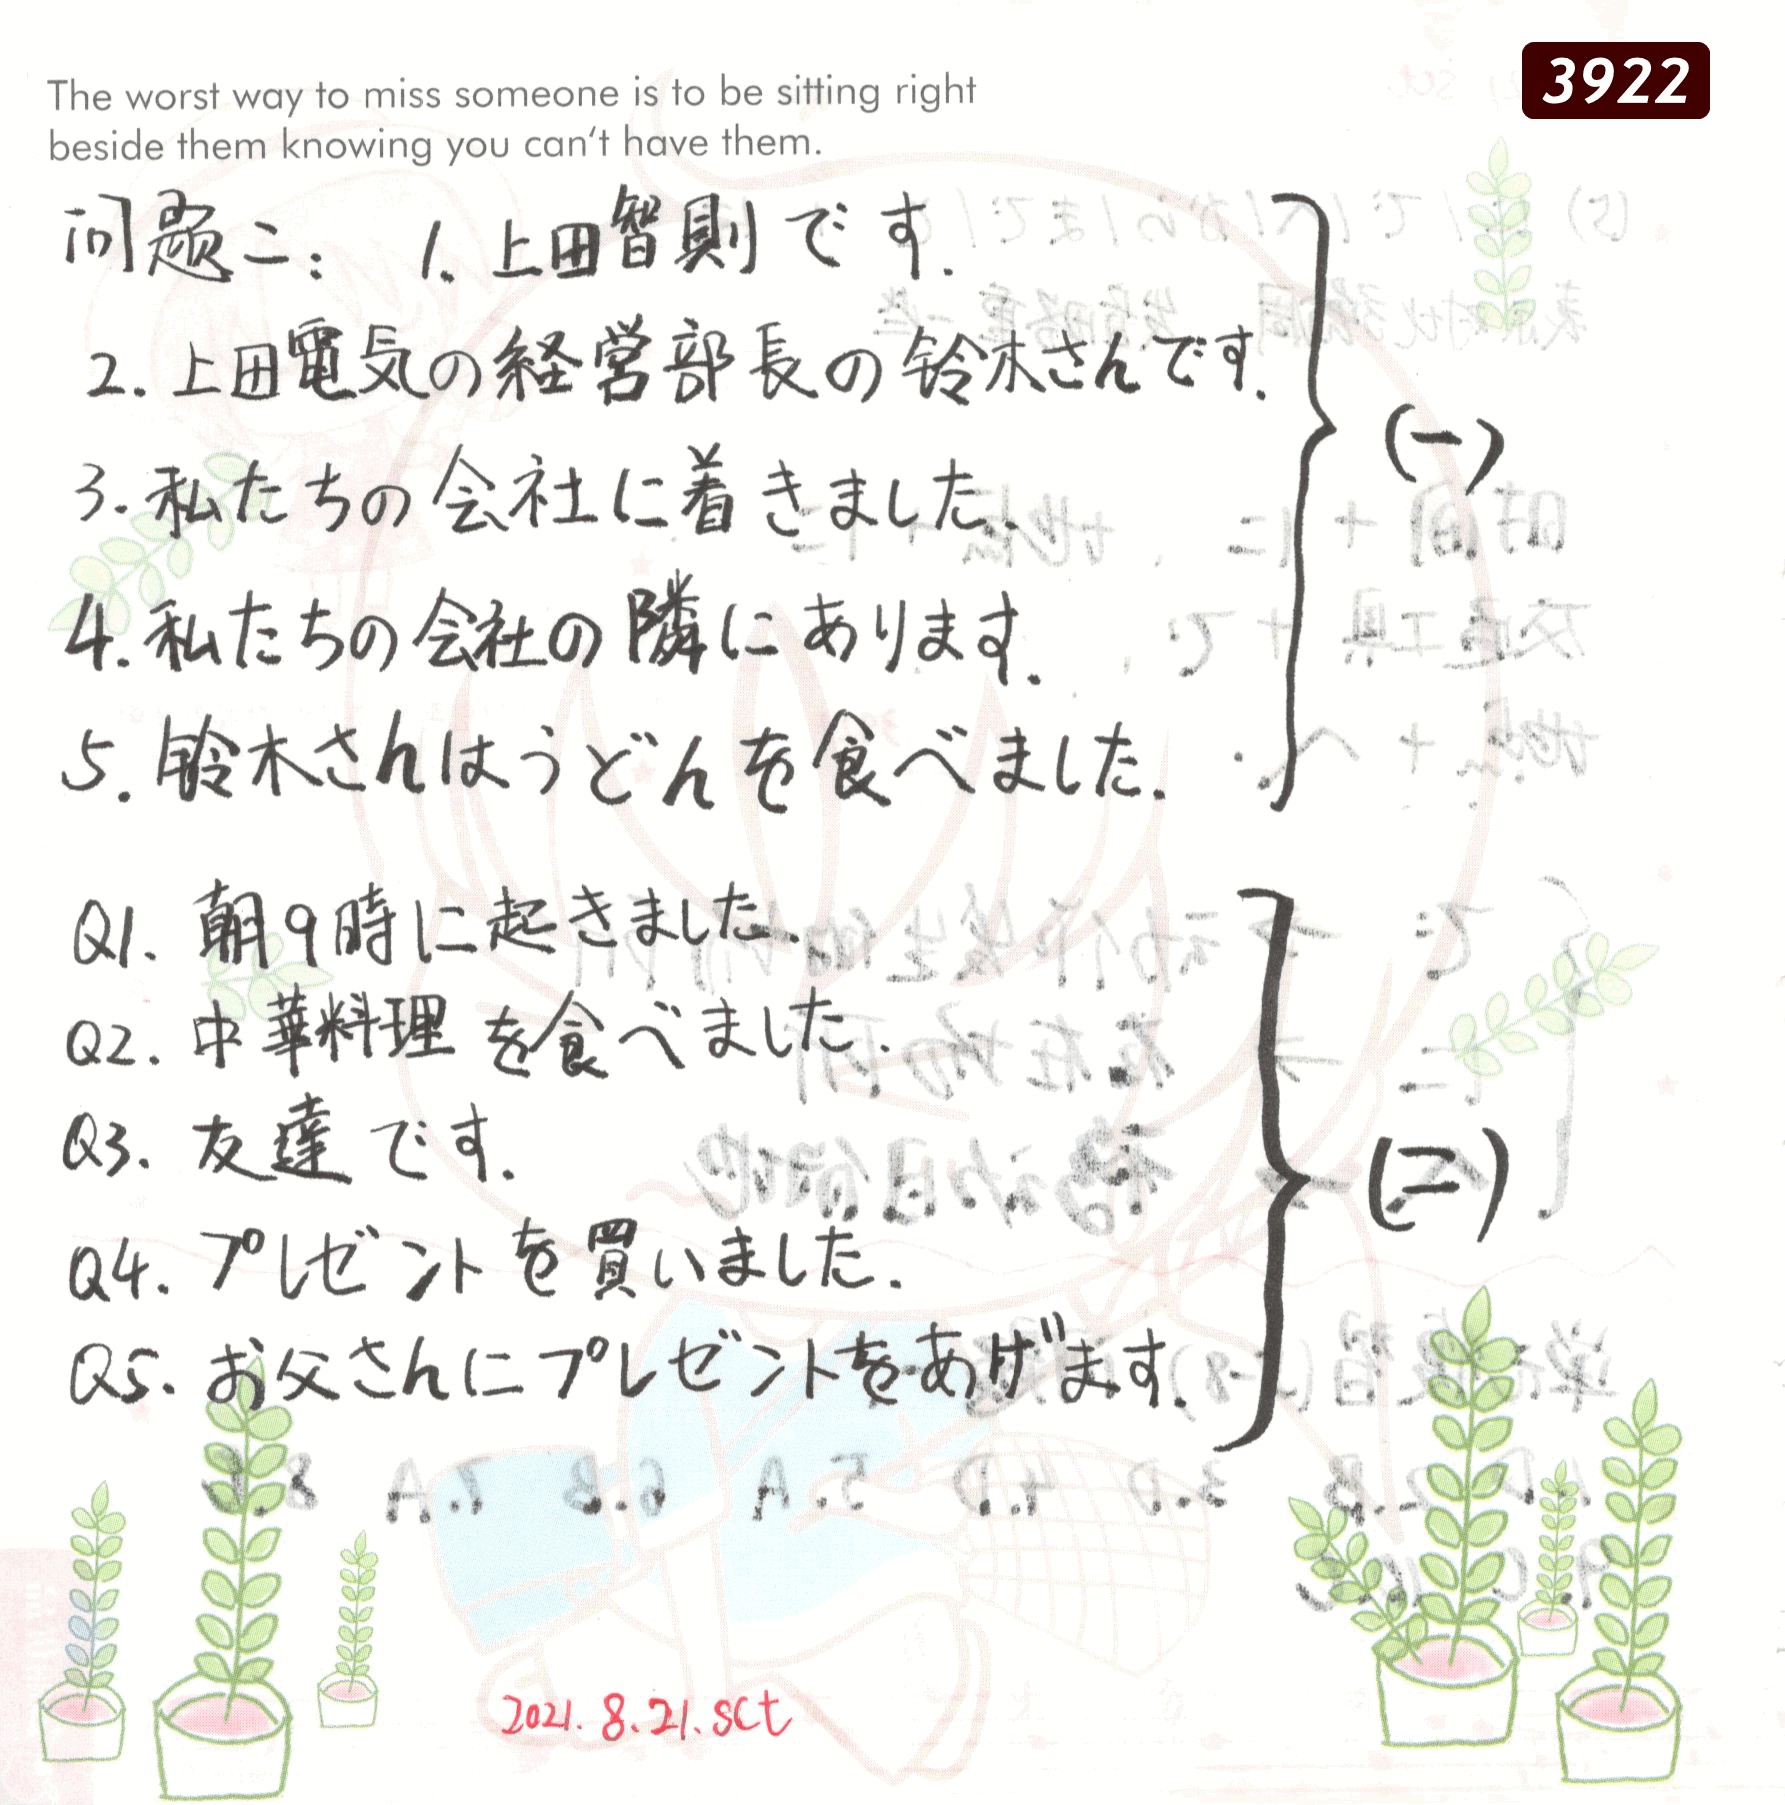 3922
The worst way to miss someone is to be sitting right
beside them knowing you can't have them.
问题二: 1. 上田智則です.
2. 上田電気の経営部長の铃木さんです.
3. 私たちの会社に着きました.
4. 私たちの会社の隣にあります.
5. 铃木さんはうどんを食べました.
(一)
Q1. 朝9時に起きました.
Q2. 中華料理を食べました.
Q3. 友達です.
Q4. プレゼントを買いました.
Q5. お父さんにプレゼントをあげます.
(二)
2021. 8. 21. sct